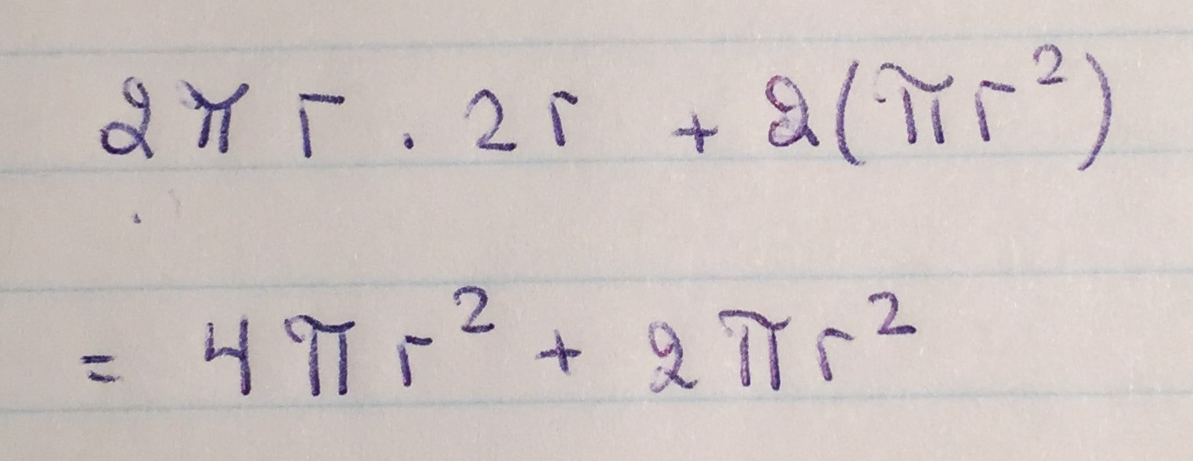 2πr · 2r + 2(πr²)
= 4πr² + 2πr²